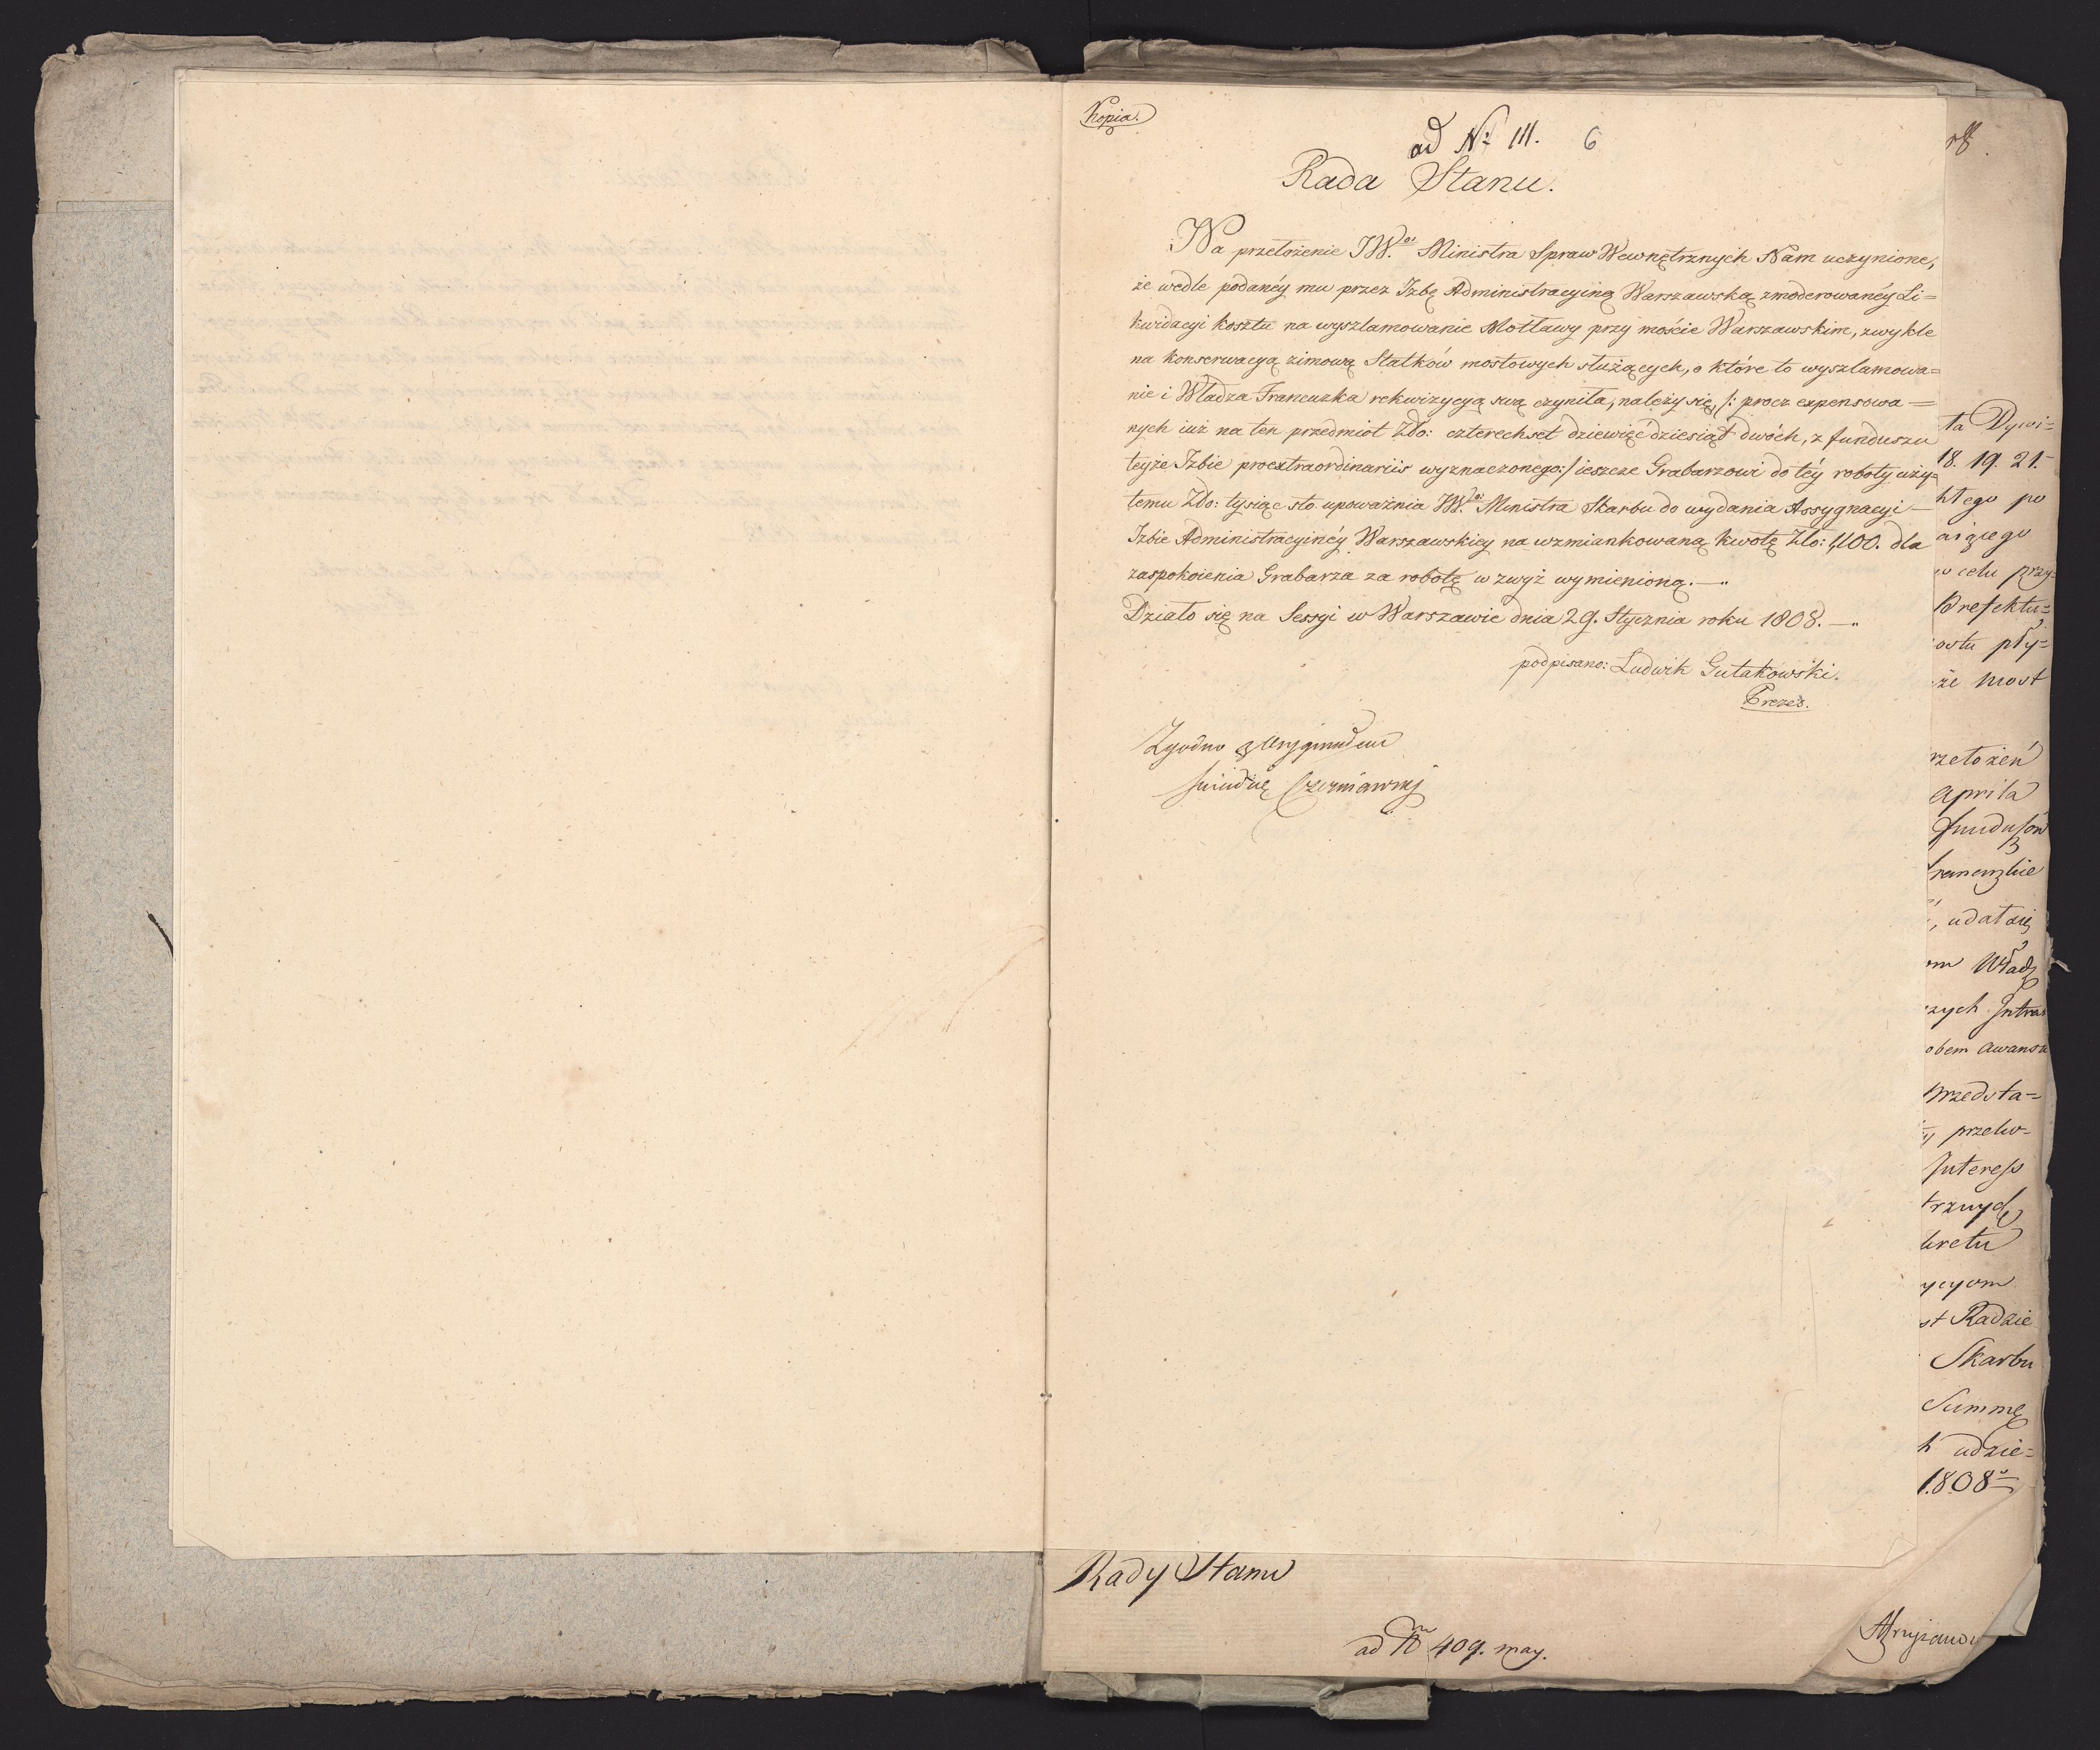 Kopia.
ad Nº III. 6
Rada Stanu.
Na przełożenie JW.go Ministra Spraw Wewnętrznych Nam uczynione,
że wedle podanéy mu przez Izbę Administracyiną Warszawską zmoderowanéy Li=
kwidacyi kosztu na wyszlamowanie Mottawy przy moście Warszawskim, zwykle
na konserwacyą zimową Statków mostowych służących, o które to wyszlamowa=
nie i Władza Francuzka rekwizycyą swą czyniła, należy się, /: procz expensowa=
nych iuż na ten przedmiot Złło: czterechset dziewięćdziesiąt dwóch, z funduszu
teyże Izbie proextraordinariis wyznaczonego:/ ieszcze Grabarzowi do téy roboty uży=
temu Złło: tysiąc sto. upoważnia JW.go Ministra Skarbu do wydania Assygnacyi
Izbie Administracyinéy Warszawskiey na wzmiankowaną kwotę Złło: 1,100. dla
zaspokoienia Grabarza za robotę w zwyż wymienioną.—
Działo się na Sessyi w Warszawie dnia 29. Stycznia roku 1808.—
podpisano: Ludwik Gutakowski.
Prezes.
Zgodno z Oryginałem
Czerniawski
ta Dywi=
18. 19. 21.
htego po
aiącego
w celu przy=
Prefektu=
ostu pły=
że most
rzełożeń
Aprila
funduszów
francuzkie
, udał się
om Władz
zych Intra
obem awansu
przedsta=
przeło=
Interess
trznych
kretu
ycyom
st Radzie
Skarbu
Summę
h udzie=
1808
Rady Stanu
ad No 409. may.